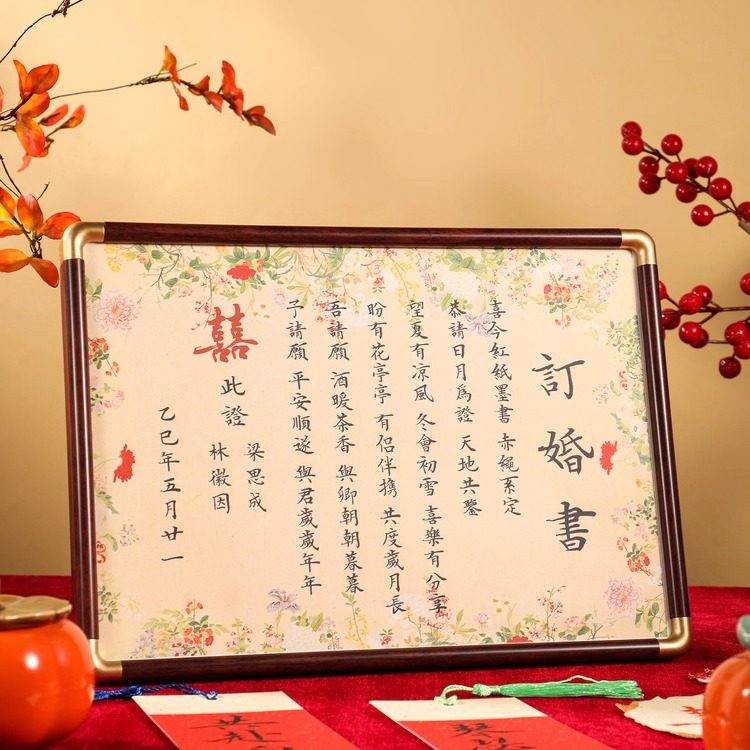 訂婚書
喜今紅紙墨書 赤繩系定
恭請日月為證 天地共鑒
望夏有涼風 冬會初雪 喜樂有分享
盼有花亭亭 有侶伴携 共度歲月長
吾請願 酒暖茶香 與卿朝朝暮暮
予請願 平安順遂 與君歲歲年年
囍
此證
梁思成
林徽因
乙巳年五月廿一
共赴